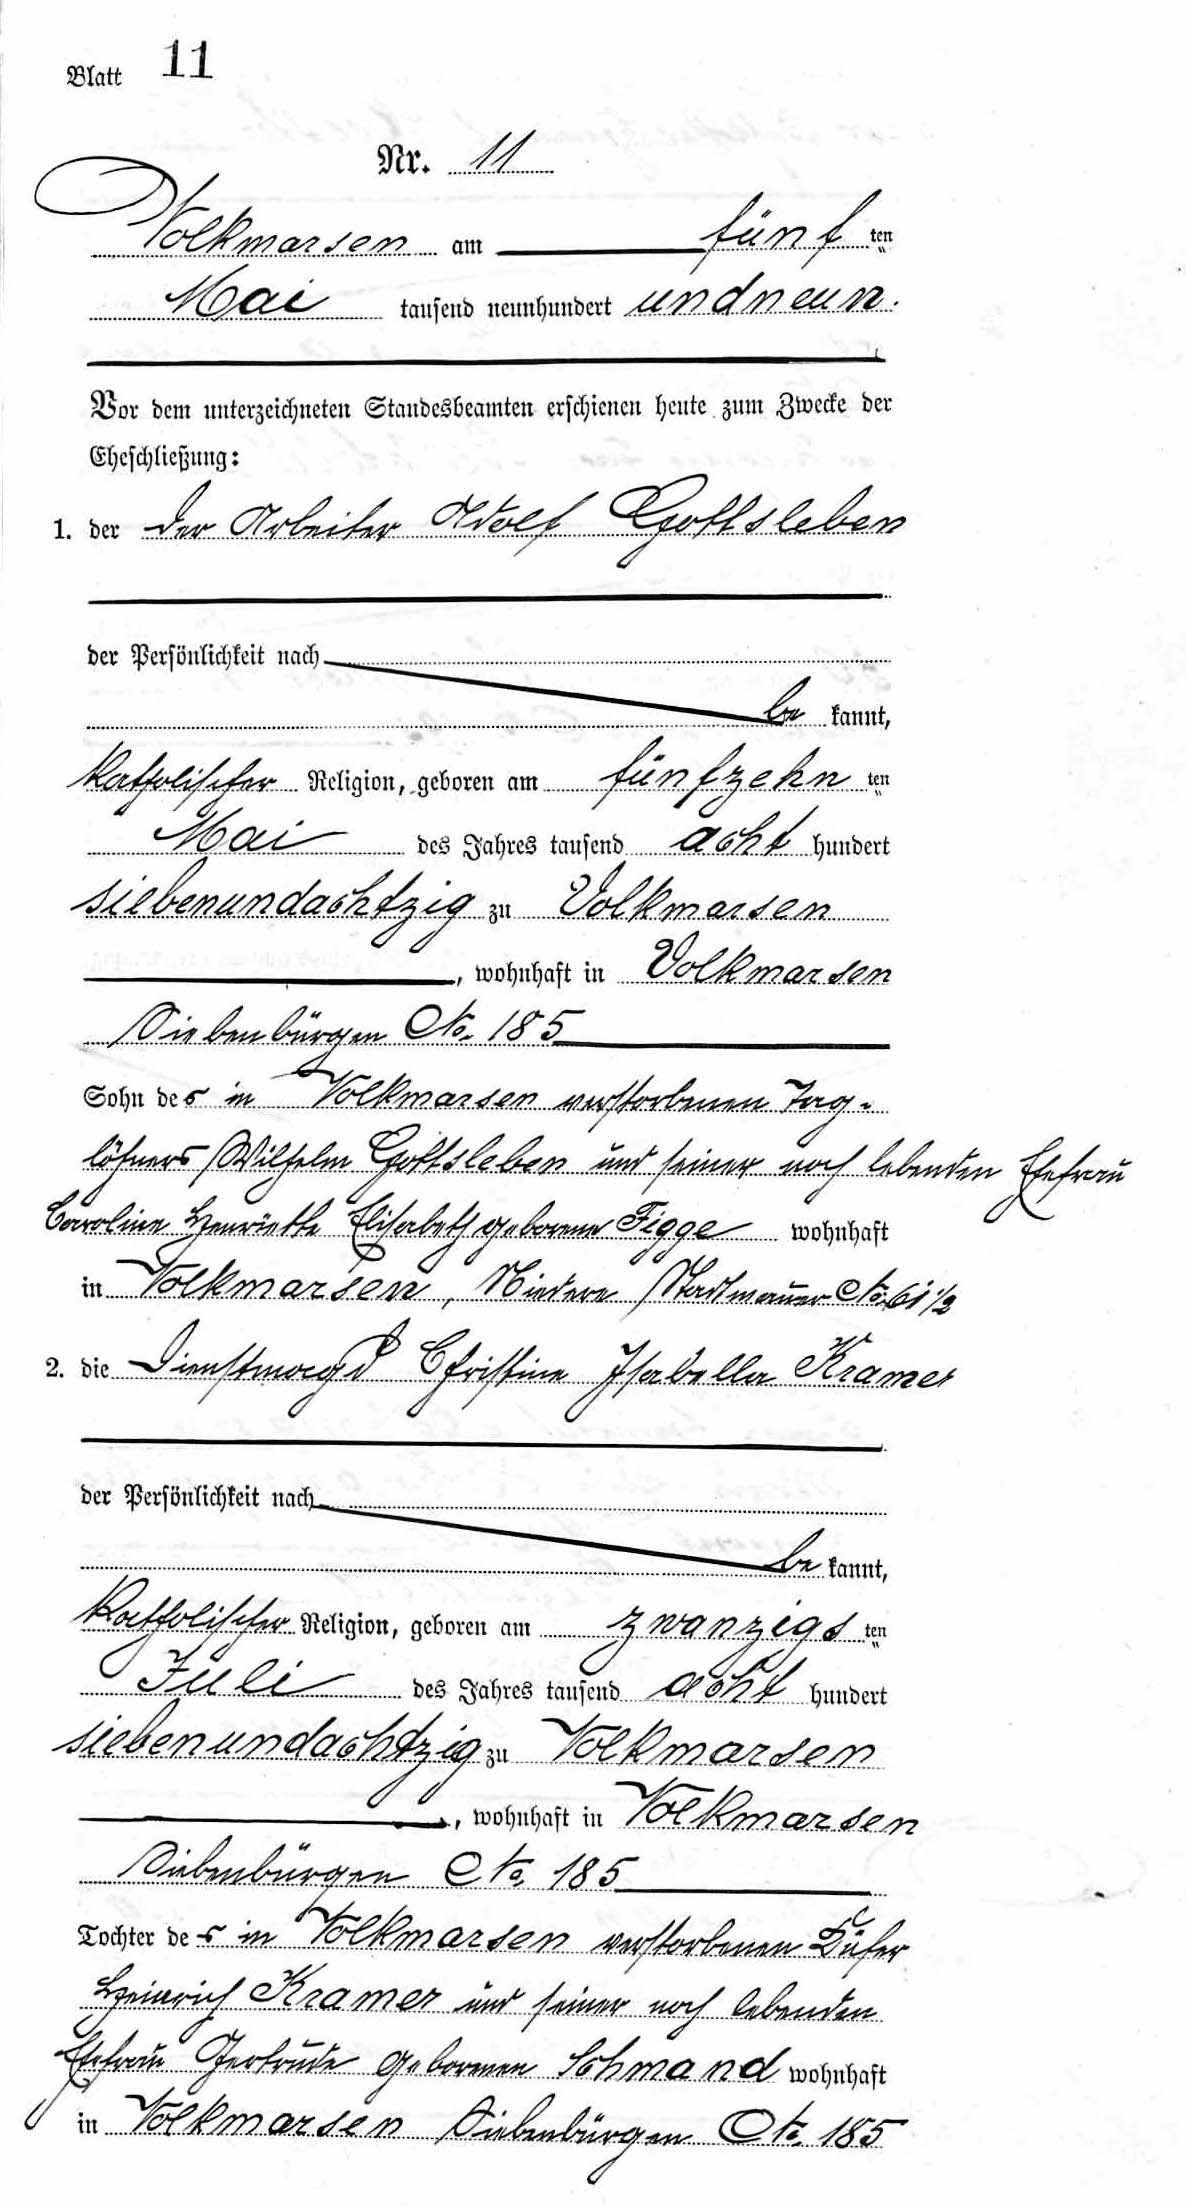 Blatt 11
Nr. 11
Volkmarsen am fünf ten
Mai tausend neunhundert undneun.
Vor dem unterzeichneten Standesbeamten erschienen heute zum Zwecke der
Eheschließung:
1. der der Arbeiter Adolf Gottsleben
der Persönlichkeit nach
be kannt,
katholischer Religion, geboren am fünfzehn ten
Mai des Jahres tausend acht hundert
siebenundachtzig zu Volkmarsen
, wohnhaft in Volkmarsen
Siebenbürgen No. 185
Sohn des in Volkmarsen verstorbenen Tag-
löhners Wilhelm Gottsleben und seiner noch lebenden Ehefrau
Caroline Henriette Elisabeth geborene Figge wohnhaft
in Volkmarsen, Niedere Stadtmauer No. 61 1/2
2. die Dienstmagd Christine Isabella Kramer
der Persönlichkeit nach
be kannt,
katholischer Religion, geboren am zwanzigs ten
Juli des Jahres tausend acht hundert
siebenundachtzig zu Volkmarsen
, wohnhaft in Volkmarsen
Siebenbürgen No. 185
Tochter des in Volkmarsen verstorbenen
Heinrich Kramer und seiner noch lebenden
Ehefrau Gertrude geborenen Schmand wohnhaft
in Volkmarsen Siebenbürgen No. 185